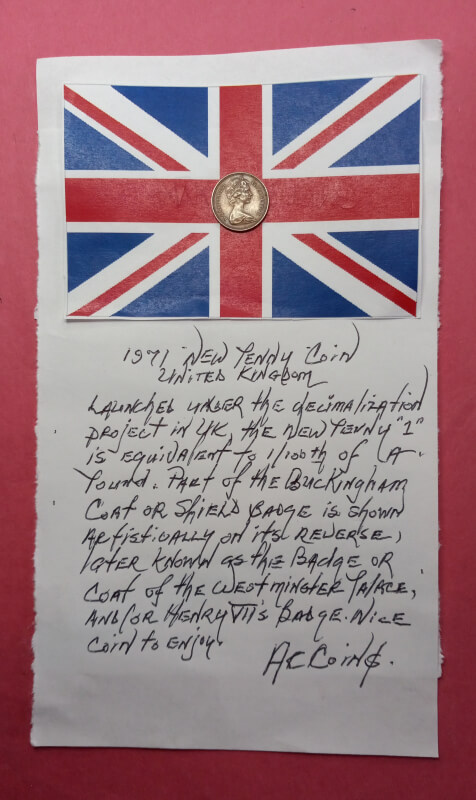 1971 New Penny Coin
United Kingdom
Launched under the decimalization
project in UK, the New Penny "1"
is equivalent to 1/100th of a
Pound. Part of the Buckingham
Coat or Shield Badge is shown
artistically on its reverse,
later known as the Badge or
Coat of the Westminster Palace,
and/or Henry VII's Badge. Nice
coin to enjoy.
AC Coin$.